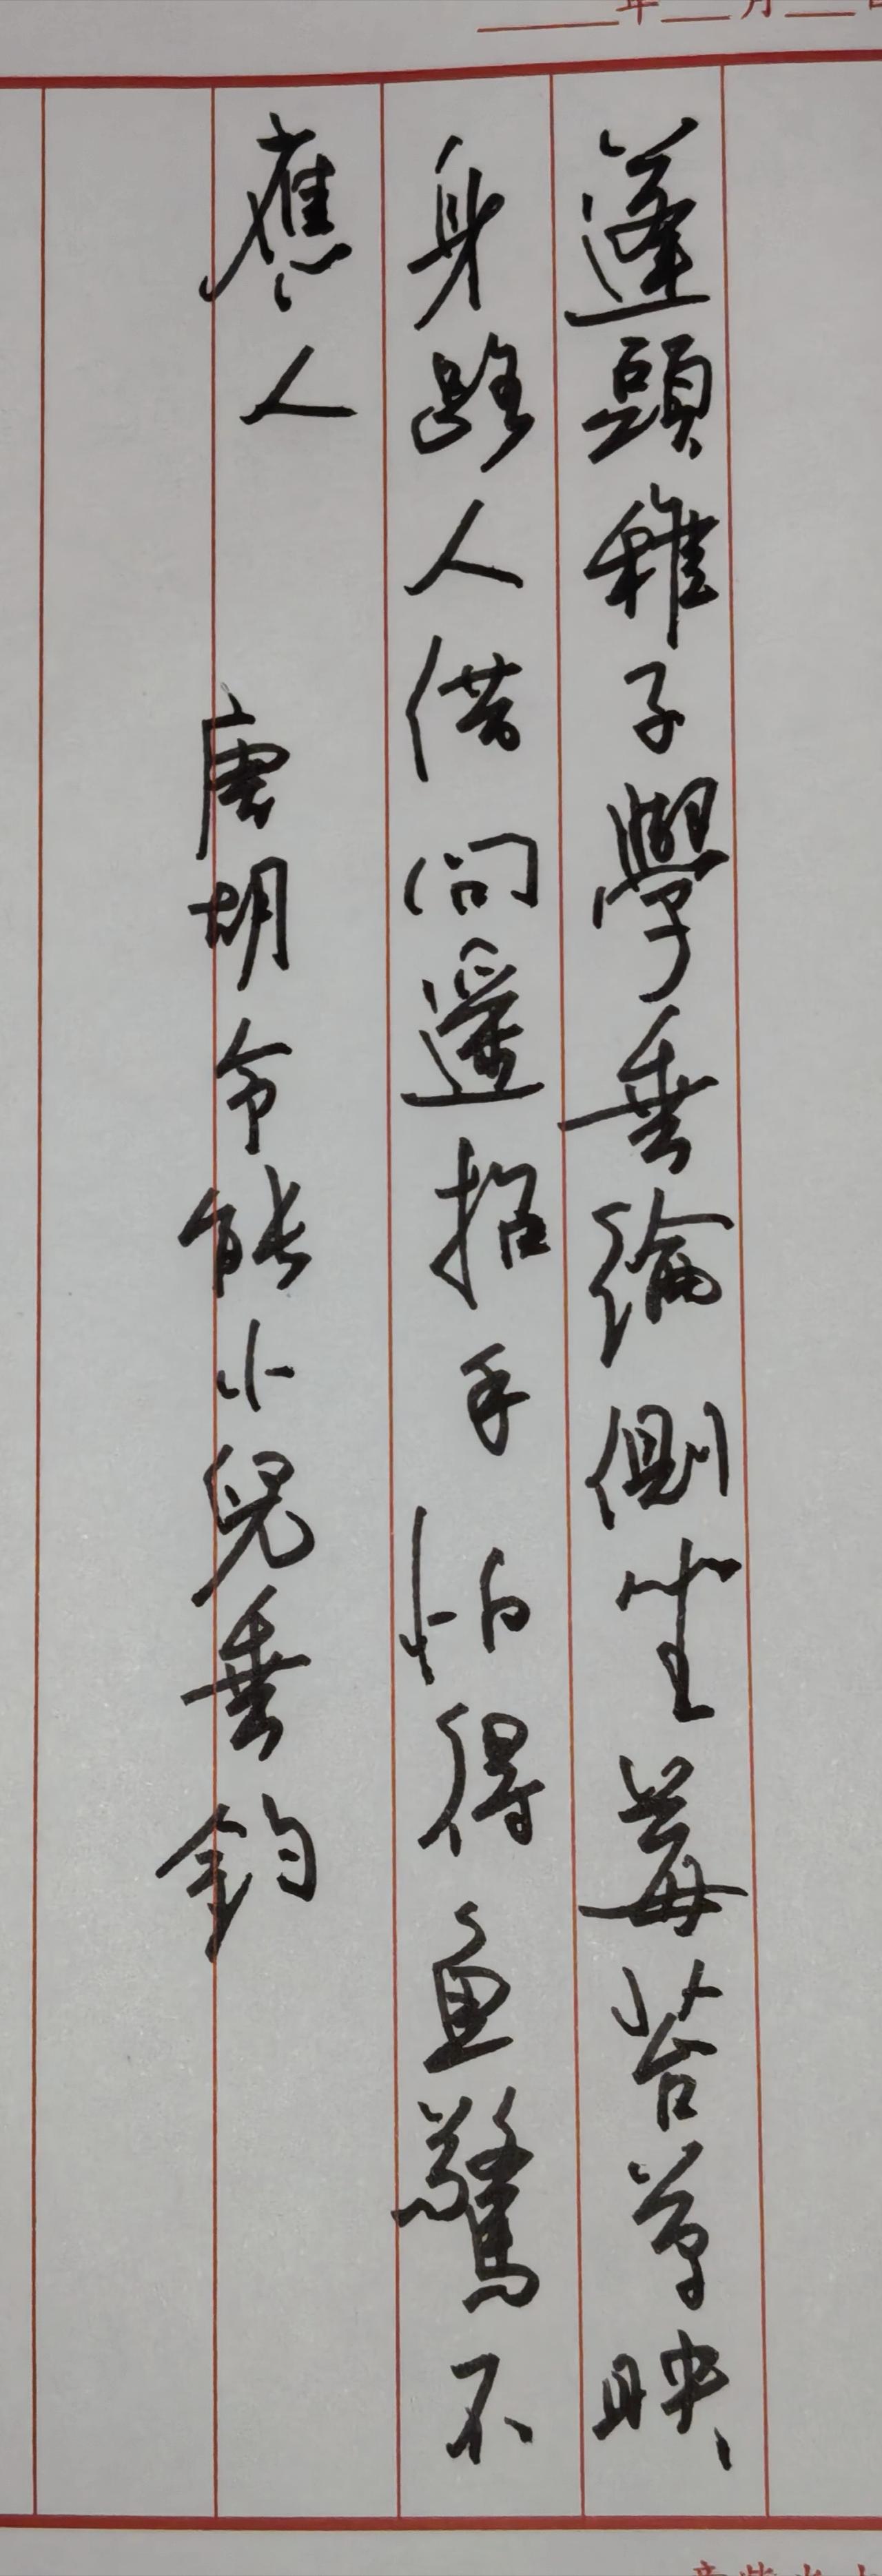 年 月
蓬頭稚子學垂綸側坐莓苔草映
身路人借問遙招手怕得魚驚不
應人 唐胡令能小兒垂鈞